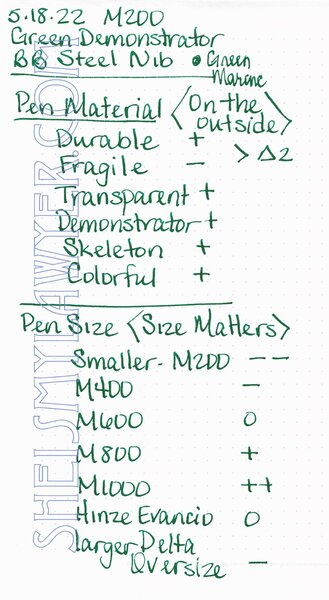 5.18.22 M200
Green Demonstrator
BB Steel Nib • Green
Marine
Pen Material <On the
outside>
Durable +
Fragile - > Δ2
Transparent +
Demonstrator +
Skeleton +
Colorful +
Pen Size <Size Matters>
Smaller - M200 --
M400 -
M600 0
M800 +
M1000 ++
Hinze Evancio 0
larger Delta
Oversize -
SHEISMYLAWYER.COM